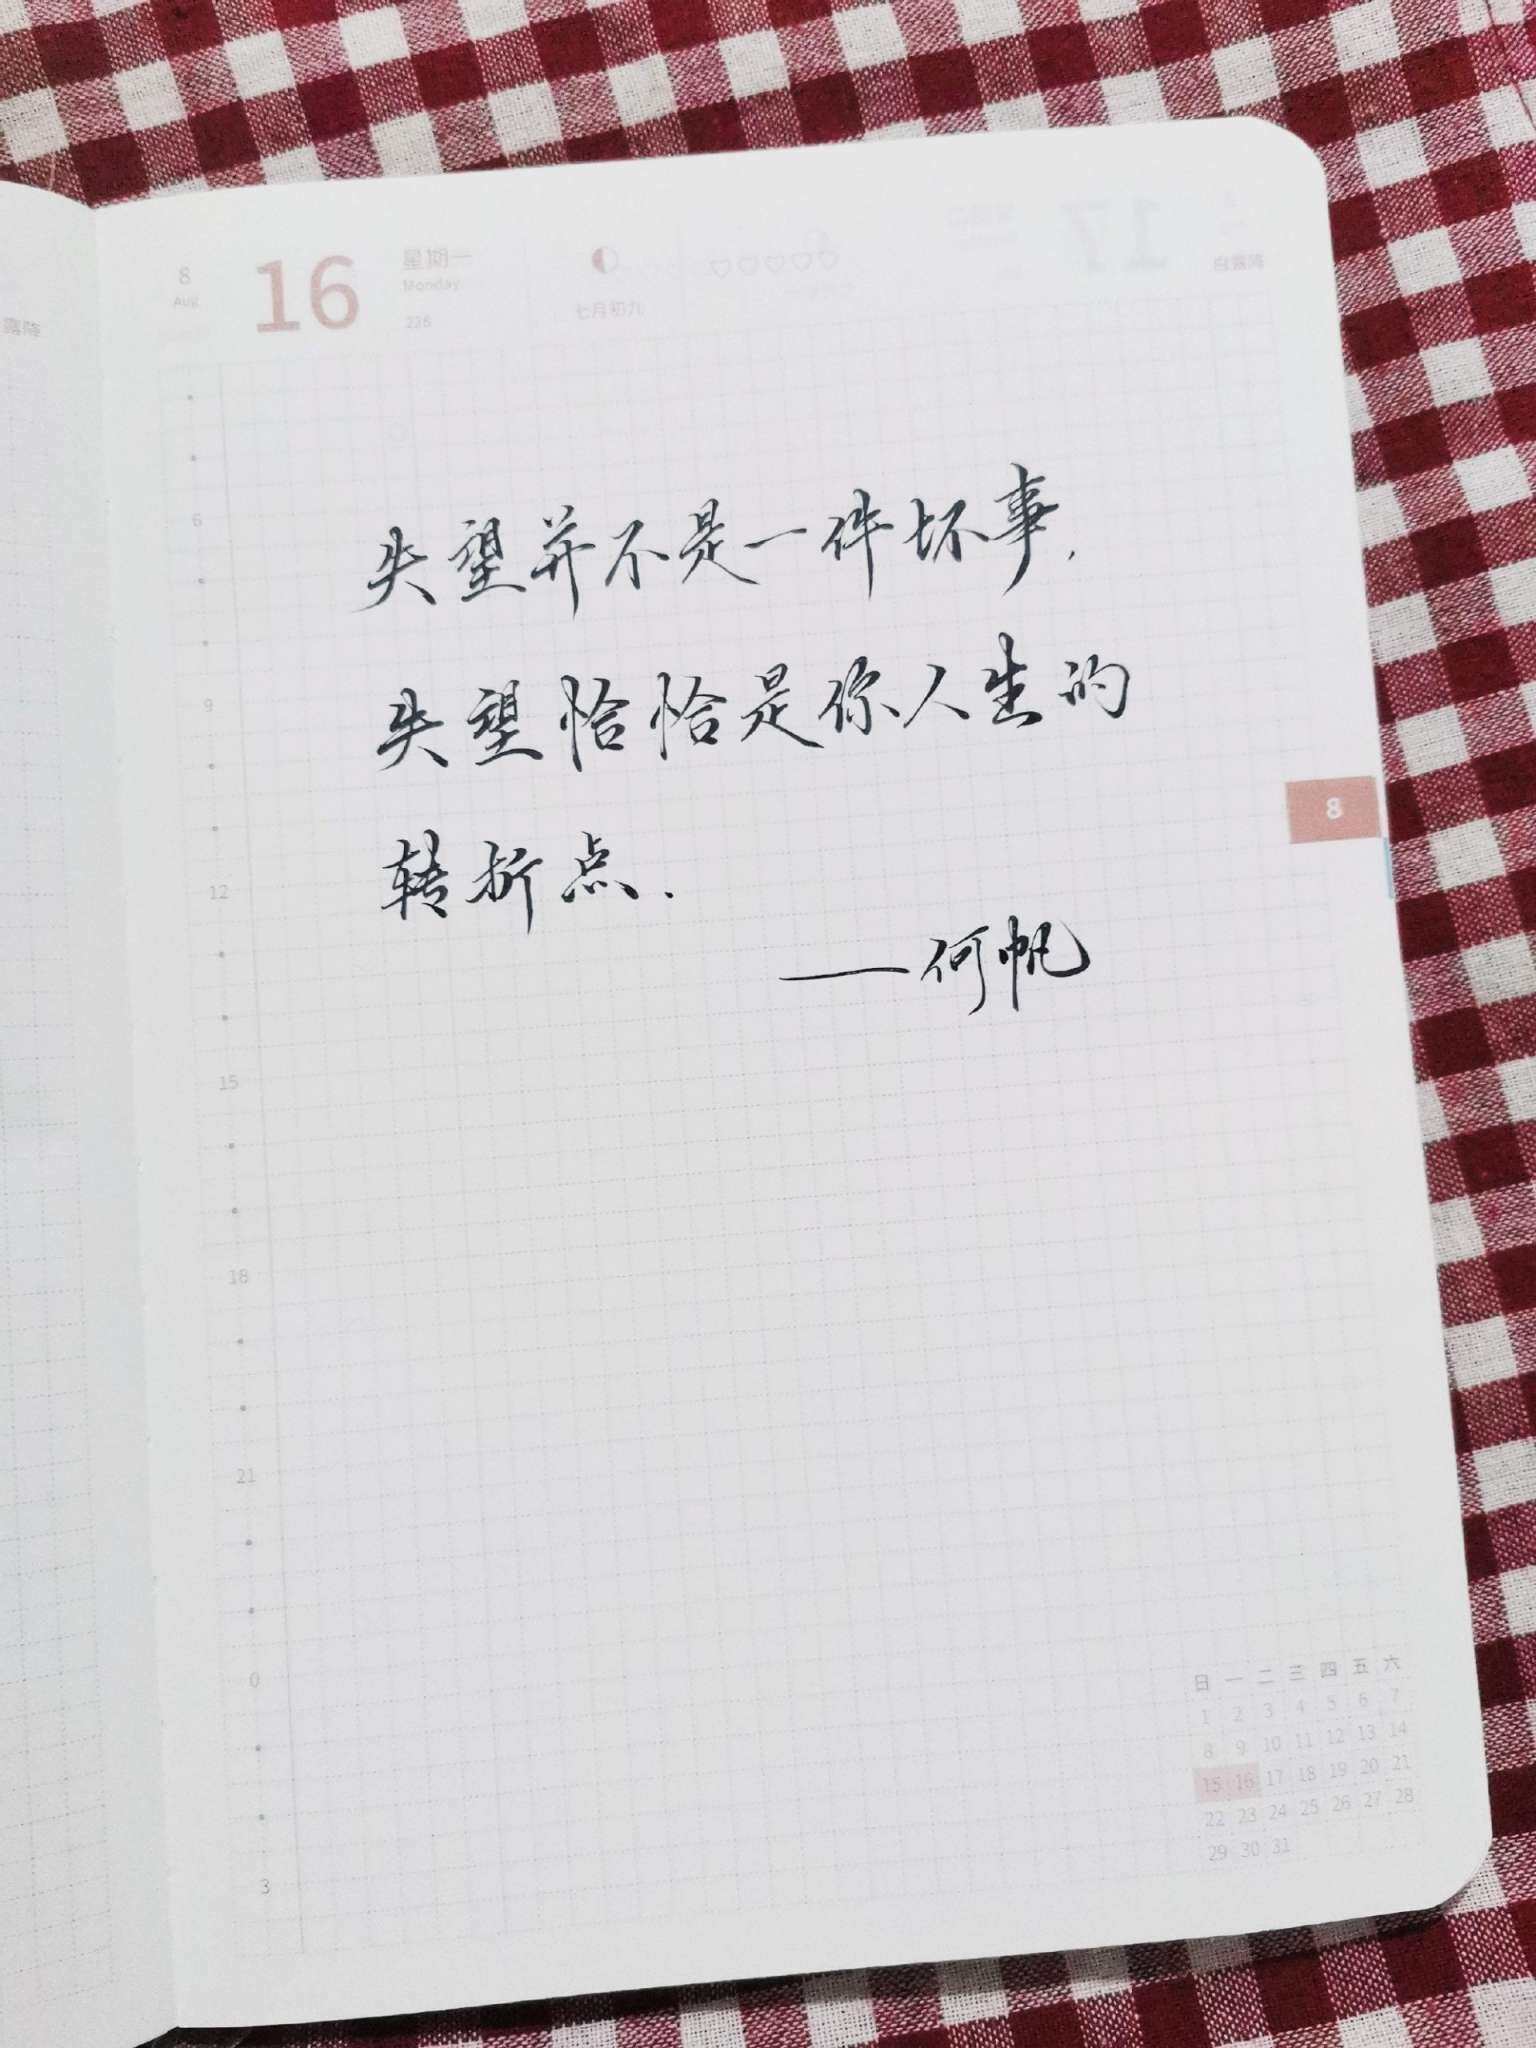 露降
8
Aug
16
星期一
Monday
七月初九
白露降
失望并不是一件坏事,
失望恰恰是你人生的
转折点.
——何帆
8
6
9
12
15
18
21
0
3
日 一 二 三 四 五 六
1 2 3 4 5 6 7
8 9 10 11 12 13 14
15 16 17 18 19 20 21
22 23 24 25 26 27 28
29 30 31